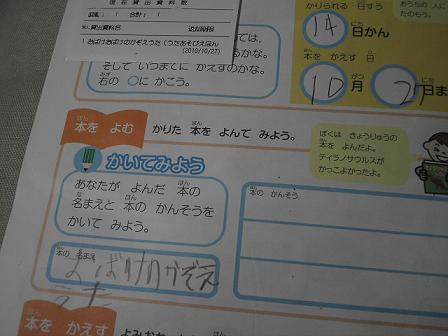 現在貸出資料数
図書: 1 合計: 1
No.貸出資料名 返却期限
1 おばけおばけのかぞえうた(うたあそびえほん
(2010/10/27)
かりられる 日すう
14 日かん
おうちの 人に
たのもう。
本を かえす 日
10月 27日ま
そして いつまでに かえすのかな。
右の ○に かこう。
本を よむ
かりた 本を よんで みよう。
ぼくは きょうりゅうの
本を よんだよ。
ティラノサウルスが
かっこよかったよ。
かいてみよう
あなたが よんだ 本の
名まえと 本の かんそうを
かいて みよう。
本の かんそう
本の 名まえ
本を かえす